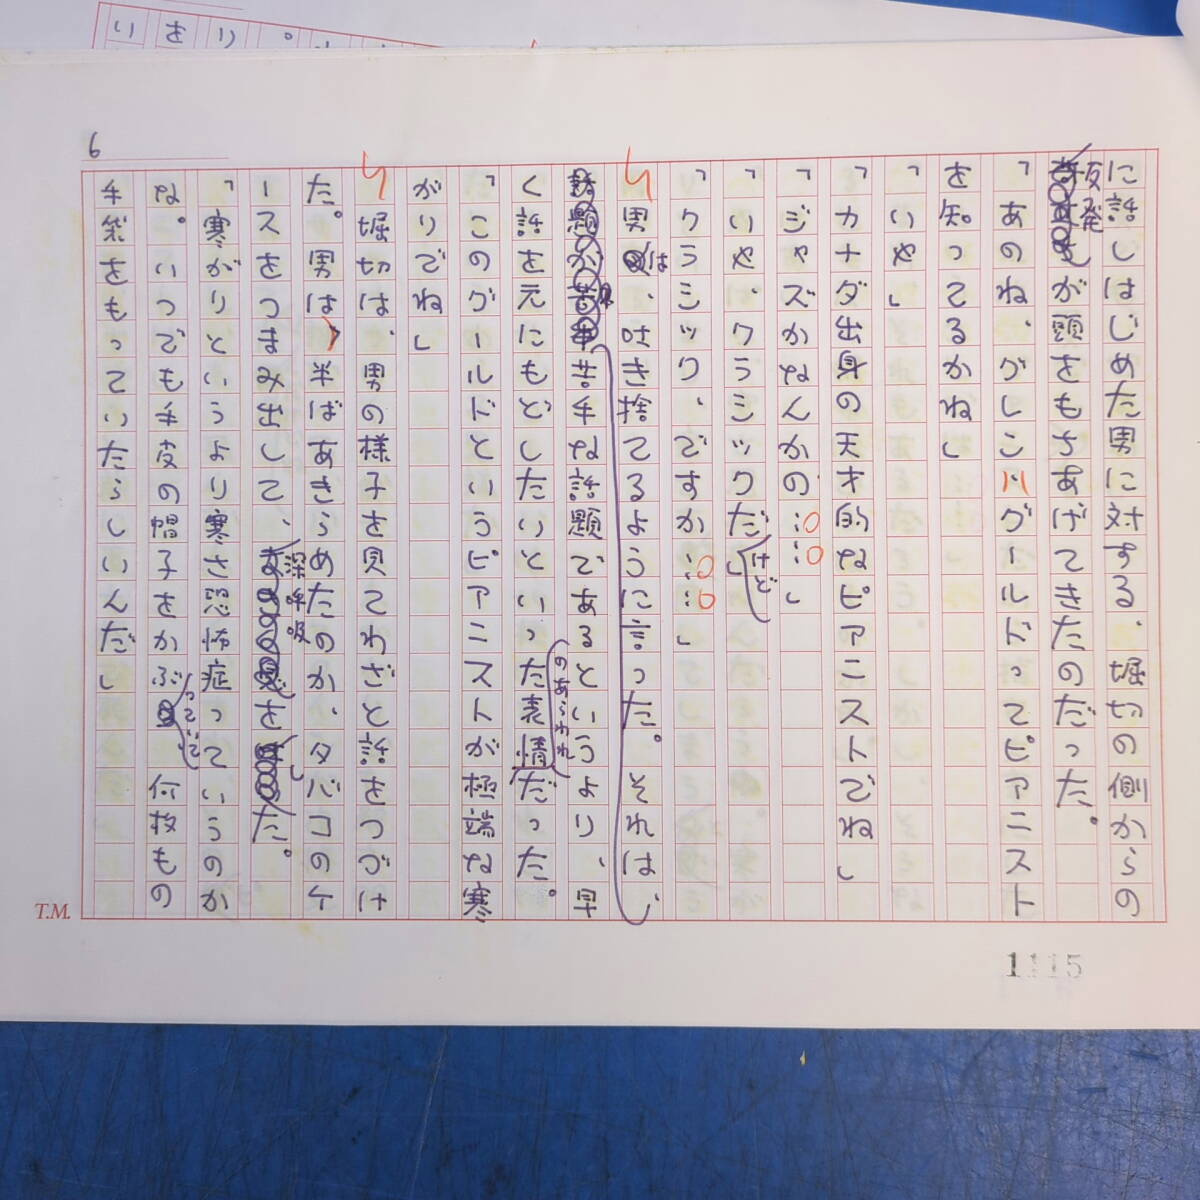 いさり。
6
に話しはじめた男に対する、堀切の側からの
反発が頭をもちあげてきたのだった。
「あのね、グレン・グールドってピアニスト
を知ってるかね」
「いや」
「カナダ出身の天才的なピアニストでね」
「ジャズかなんかの……」
「いや、クラシックだけど」
「クラシック、ですか……」
男は、吐き捨てるように言った。それは、
苦手な話題であるというより、早
く話を元にもどしたいといった表情のあらわれだった。
「このグールドというピアニストが極端な寒
がりでね」
堀切は、男の様子を見てわざと話をつづけ
た。男は、半ばあきらめたのか、タバコのケ
ースをつまみ出して、深呼吸をした。
「寒がりというより寒さ恐怖症っていうのか
な。いつでも手皮の帽子をかぶっていて何枚もの
手袋をもっていたらしいんだ」
T.M.
1115